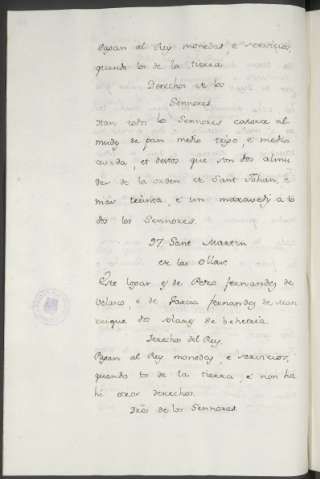 Pagan al Rey monedas, e servicios,
quando los de la tierra
Derechos de los
Sennores
Dan todos los Sennores cada al
mudes de pan medio trigo, e medio
cevada, et destos que son dos almu
des de la orden de Sant Johan, e
mas e un maravedi a to
dos los Sennores.
97. Sant Martin
de las Ollas.
Este logar es de Pedro Fernandes de
Velasco, e de Garcia Fernandes de Man
rique solares de behetria.
Derechos del Rey.
Pagan al Rey monedas, e servicios,
quando los de la tierra, e non ha
hi otros derechos.
Dros de los Sennores.